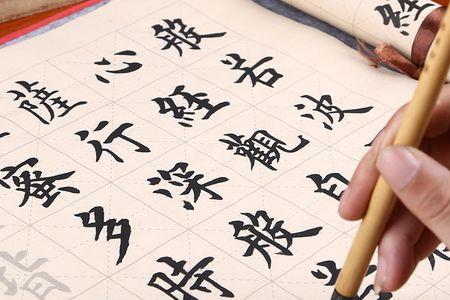 經
般若波
心經觀自
薩行深般
蜜多時